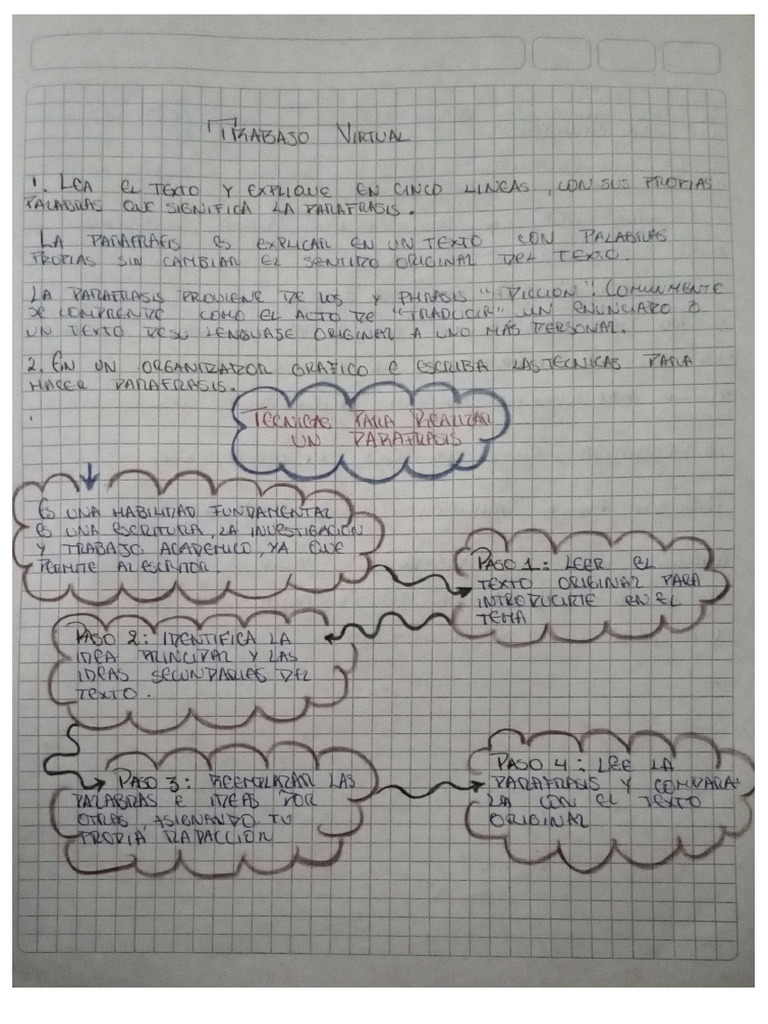 TRABAJO VIRTUAL
1. LEA EL TEXTO Y EXPLIQUE EN CINCO LINEAS, CON SUS PROPIAS
PALABRAS QUE SIGNIFICA LA PARAFRASIS.
LA PARAFRASIS ES EXPLICAR EN UN TEXTO CON PALABRAS
PROPIAS SIN CAMBIAR EL SENTIDO ORIGINAL DEL TEXTO.
LA PARAFRASIS PROVIENE DE LOS Y PHRASIS "DICCION". COMUNMENTE
SE COMPRENDE COMO EL ACTO DE "TRADUCIR" UN ENUNCIADO O
UN TEXTO DESU LENGUAJE ORIGINAL A UNO MAS PERSONAL.
2. EN UN ORGANIZADOR GRAFICO E ESCRIBA LAS TECNICAS PARA
HACER PARAFRASIS.
TECNICAS PARA REALIZAR
UN PARAFRASIS
ES UNA HABILIDAD FUNDAMENTAL
ES UNA ESCRITURA, LA INVESTIGACION
Y TRABAJO ACADEMICO, YA QUE
PERMITE AL ESCRITOR.
PASO 1: LEER EL
TEXTO ORIGINAL PARA
INTRODUCIRTE EN EL
TEMA
PASO 2: IDENTIFICA LA
IDEA PRINCIPAL Y LAS
IDEAS SECUNDARIES DEL
TEXTO.
PASO 3: REEMPLAZAR LAS
PALABRAS E IDEAS POR
OTRAS, ASIGNANDO TU
PROPIA RADACCION
PASO 4: LEE LA
PARAFRASIS Y COMPARA-
LA CON EL TEXTO
ORIGINAL